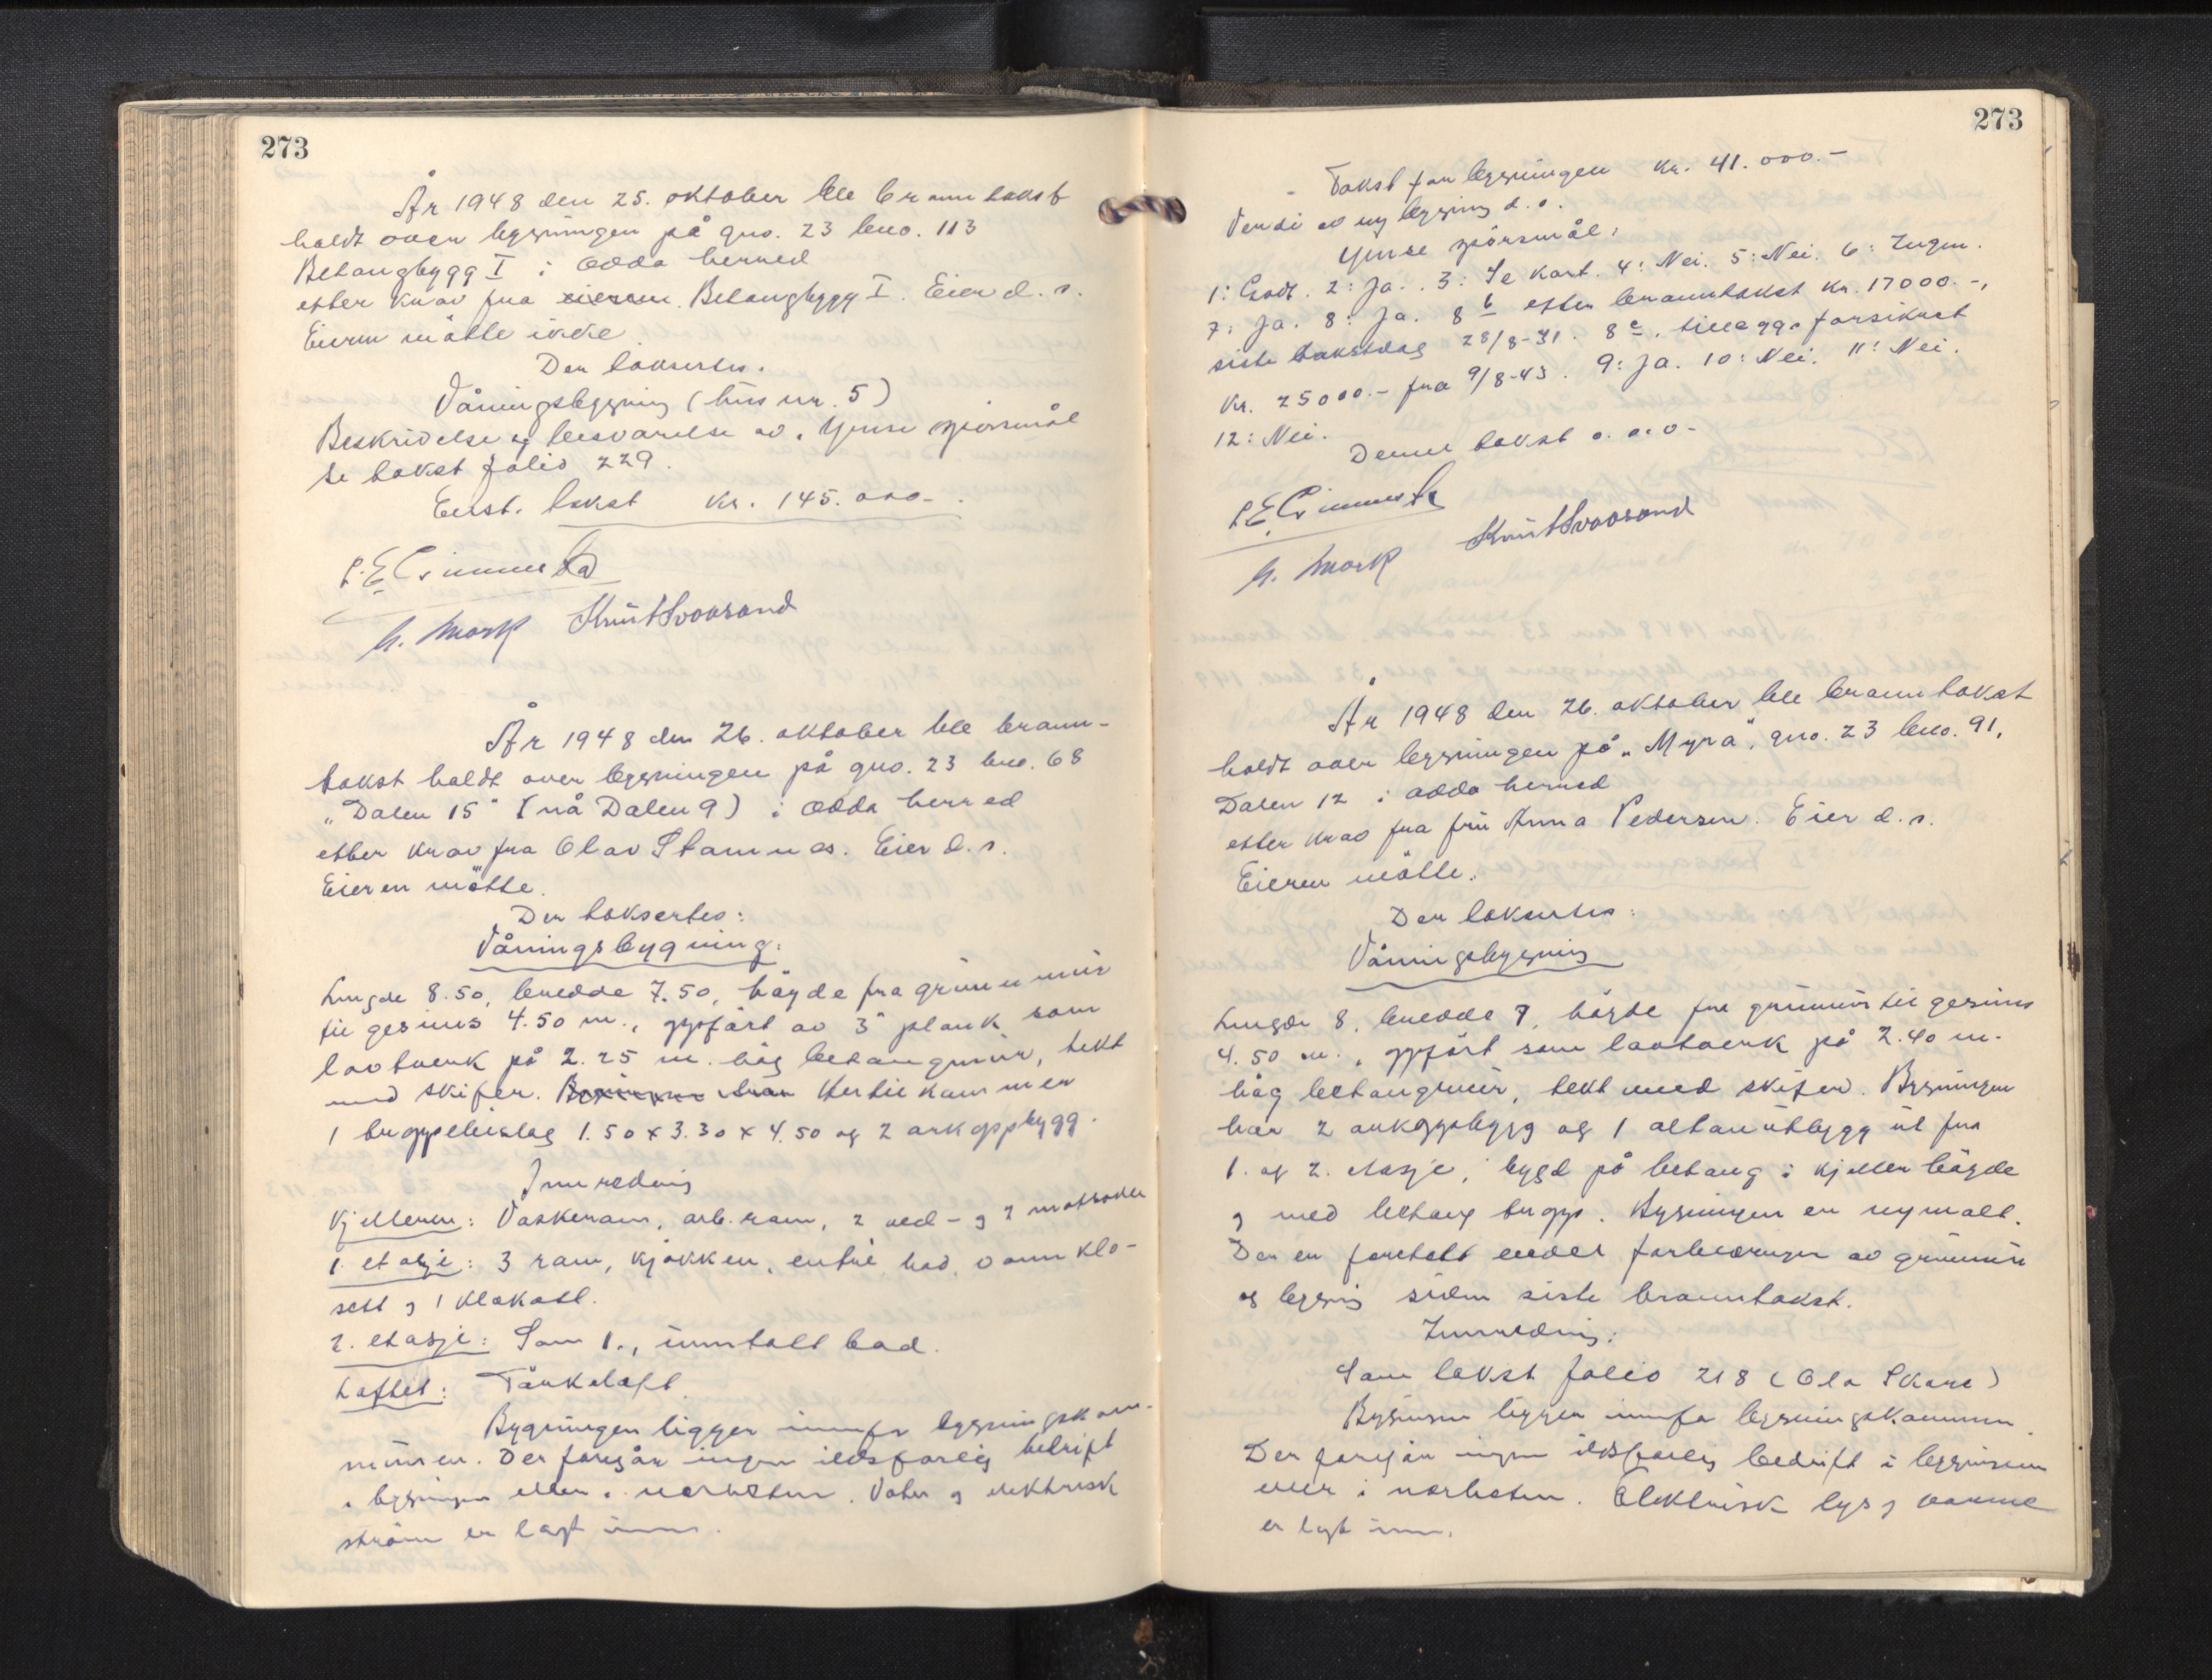 273
År 1948 den 25. oktober ble branntakst
holdt over bygningen på gno. 23 bno. 113
Betongbygg I i Odda herred
etter krav fra eieren Betongbygg I. Eier d. s.
Eieren møtte ikke
Der taksertes.
Våningsbygning (hus nr. 5)
Beskrivelse og besvarelse av "Ymse spörsmål
se takst folio 229.
Erst. takst kr. 145.000-.
h. Mork Knut Svoorand
År 1948 den 26. oktober ble brann-
takst holdt over bygningen på gno. 23 bno. 68
"Dalen 15" (nå Dalen 9) i Odda herred
etter krav fra Olav Stamnes. Eier d. s.
Eieren møtte.
Der taksertes:
Våningsbygning:
Lengde 8.50, bredde 7.50, höyde fra grunnmur
til gesims 4.50 m., oppfört av 3" plank som
lavtverk på 2.25 m. høg betongmur, tekt
med skifer. Hertil kommer
1 trappebislag 1.50 x 3.30 x 4.50 og 2 arkoppbygg.
Innredning
Kjelleren: Vaskerom, arb. rom, 2 ved- og 2 matboder
1. etasje: 3 rom, kjøkken, entré, bad, vannklo-
sett og 1 kleskott.
2. etasje: Som 1., unntatt bad.
Loftet: Törkeloft.
Bygningen ligger innafor bygningskom-
munen. Der foregår ingen ildsfarlig bedrift
i bygningen eller i nærheten. Vatn og elektrisk
ström er lagt inn.
273
- Takst for bygningen kr. 41.000.-
Verdi av ny bygning d. s.
Ymse spörsmål:
1: Godt. 2: Ja. 3: Se kart. 4: Nei. 5: Nei. 6: Ingen.
7: Ja. 8: Ja. 8 b etter branntakst kr. 17000.-,
siste takstdag 28/8-31. 8 c. tilleggsforsikret
kr. 25000.- fra 9/8-43. 9: Ja. 10: Nei. 11: Nei.
12: Nei.
Denne takst o. a. o-
h. Mork Knut Svoorand
År 1948 den 26. oktober ble branntakst
holdt over bygningen på "Myra", gno. 23 bno. 91,
Dalen 12 i Odda herred
etter krav fra fru Anna Pedersen. Eier d. s.
Eieren møtte.
Der taksertes:
Våningsbygning
Lengde 8, bredde 7, höyde fra grunnmur til gesims
4.50 m., oppfört som lavtverk på 2.40 m.
høg betongmur, tekt med skifer. Bygningen
har 2 arkoppbygg og 1 altanutbygg ut fra
1. og 2. etasje, bygd på betong i kjellerhöyde
og med betong trapp. Bygningen er nymalt.
Der er foretatt endel forbedringer av grunnmur
og bygning siden siste branntakst.
Innredning:
Som takst folio 218 (Ola Skare)
Bygningen ligger innafor bygningskommunen.
Der foregår ingen ildsfarlig bedrift i bygningen
eller i nærheten. Elektrisk lys og varme
er lagt inn.